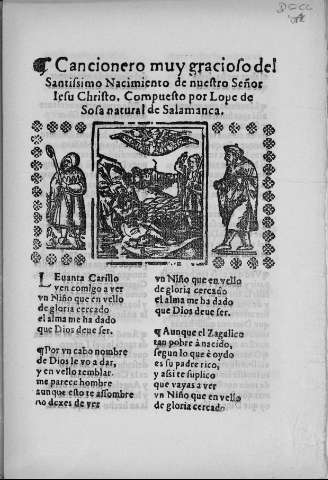 ¶ Cancionero muy gracioso del
Santissimo Nacimiento de nuestro Señor
Iesu Christo. Compuesto por Lope de
Sosa natural de Salamanca.
LEuanta Carillo
ven comigo a ver
vn Niño que en vello
de gloria cercado
el alma me ha dado
que Dios deue ser.
¶Por vn cabo nombre
de Dios le vo a dar,
y en vello temblar.
me parece hombre
aunque esto te assombre
no dexes de ver
vn Niño que en vello
de gloria cercado
el alma me ha dado
que Dios deue ser.
¶ Aunque el Zagalico
tan pobre à nacido,
segun lo que è oydo
es su padre rico,
y assi te suplico
que vayas a ver
vn Niño que en vello
de gloria cercado